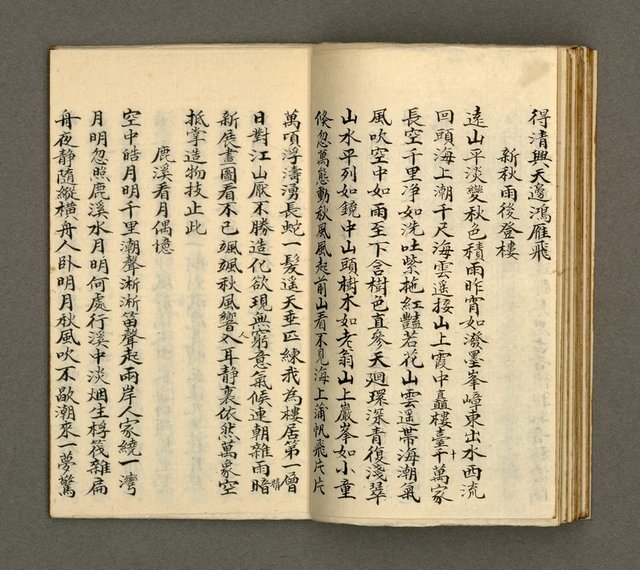 得清興天邊鴻雁飛
新秋雨後登樓
遠山平淡變秋色積雨昨宵如潑墨峯嶂東出水西流
回頭海上潮千尺海雲遥接山上霞中矗樓臺千萬家
長空千里净如洗吐紫拖紅豔若花山雲遥帶海潮氣
風吹空中如雨至下含樹色直參天迴環深青復淺翠
山水平列如鏡中山頭樹木如老翁山上巖峯如小童
倐忽萬態動秋風風起前山看不見海上蒲帆飛片片
萬頃浮濤湧長蛇一髮遥天垂匹練我為樓居第一層
日對江山厭不勝造化欲現無窮意氣候連朝雜雨暗
新展畫圖看不已颯颯秋風響入耳靜裏依然萬象空
抵掌造物技止此
鹿溪看月偶憶
空中皓月明千里潮聲淅淅笛聲起兩岸人家繞一灣
月明忽照鹿溪水月明何處行溪中淡烟生桴筏雜扁
舟夜静随縱横舟人卧明月秋風吹不歇潮來一夢驚